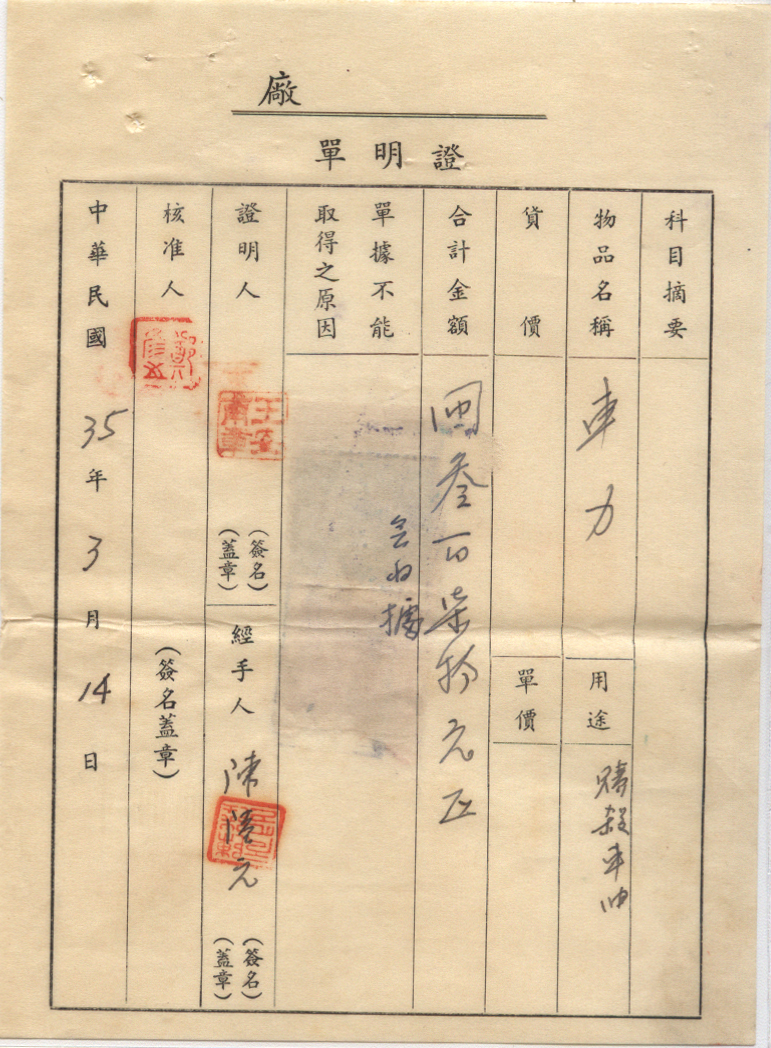 廠
證明單
科目摘要
物品名稱
車力
用途
車
貨價
單價
合計金額
叁百柒拾元正
單據不能
取得之原因
據
證明人
王
章
(簽名
蓋章)
經手人
陳隆元
(簽名
蓋章)
核准人
(簽名蓋章)
中華民國35年3月14日